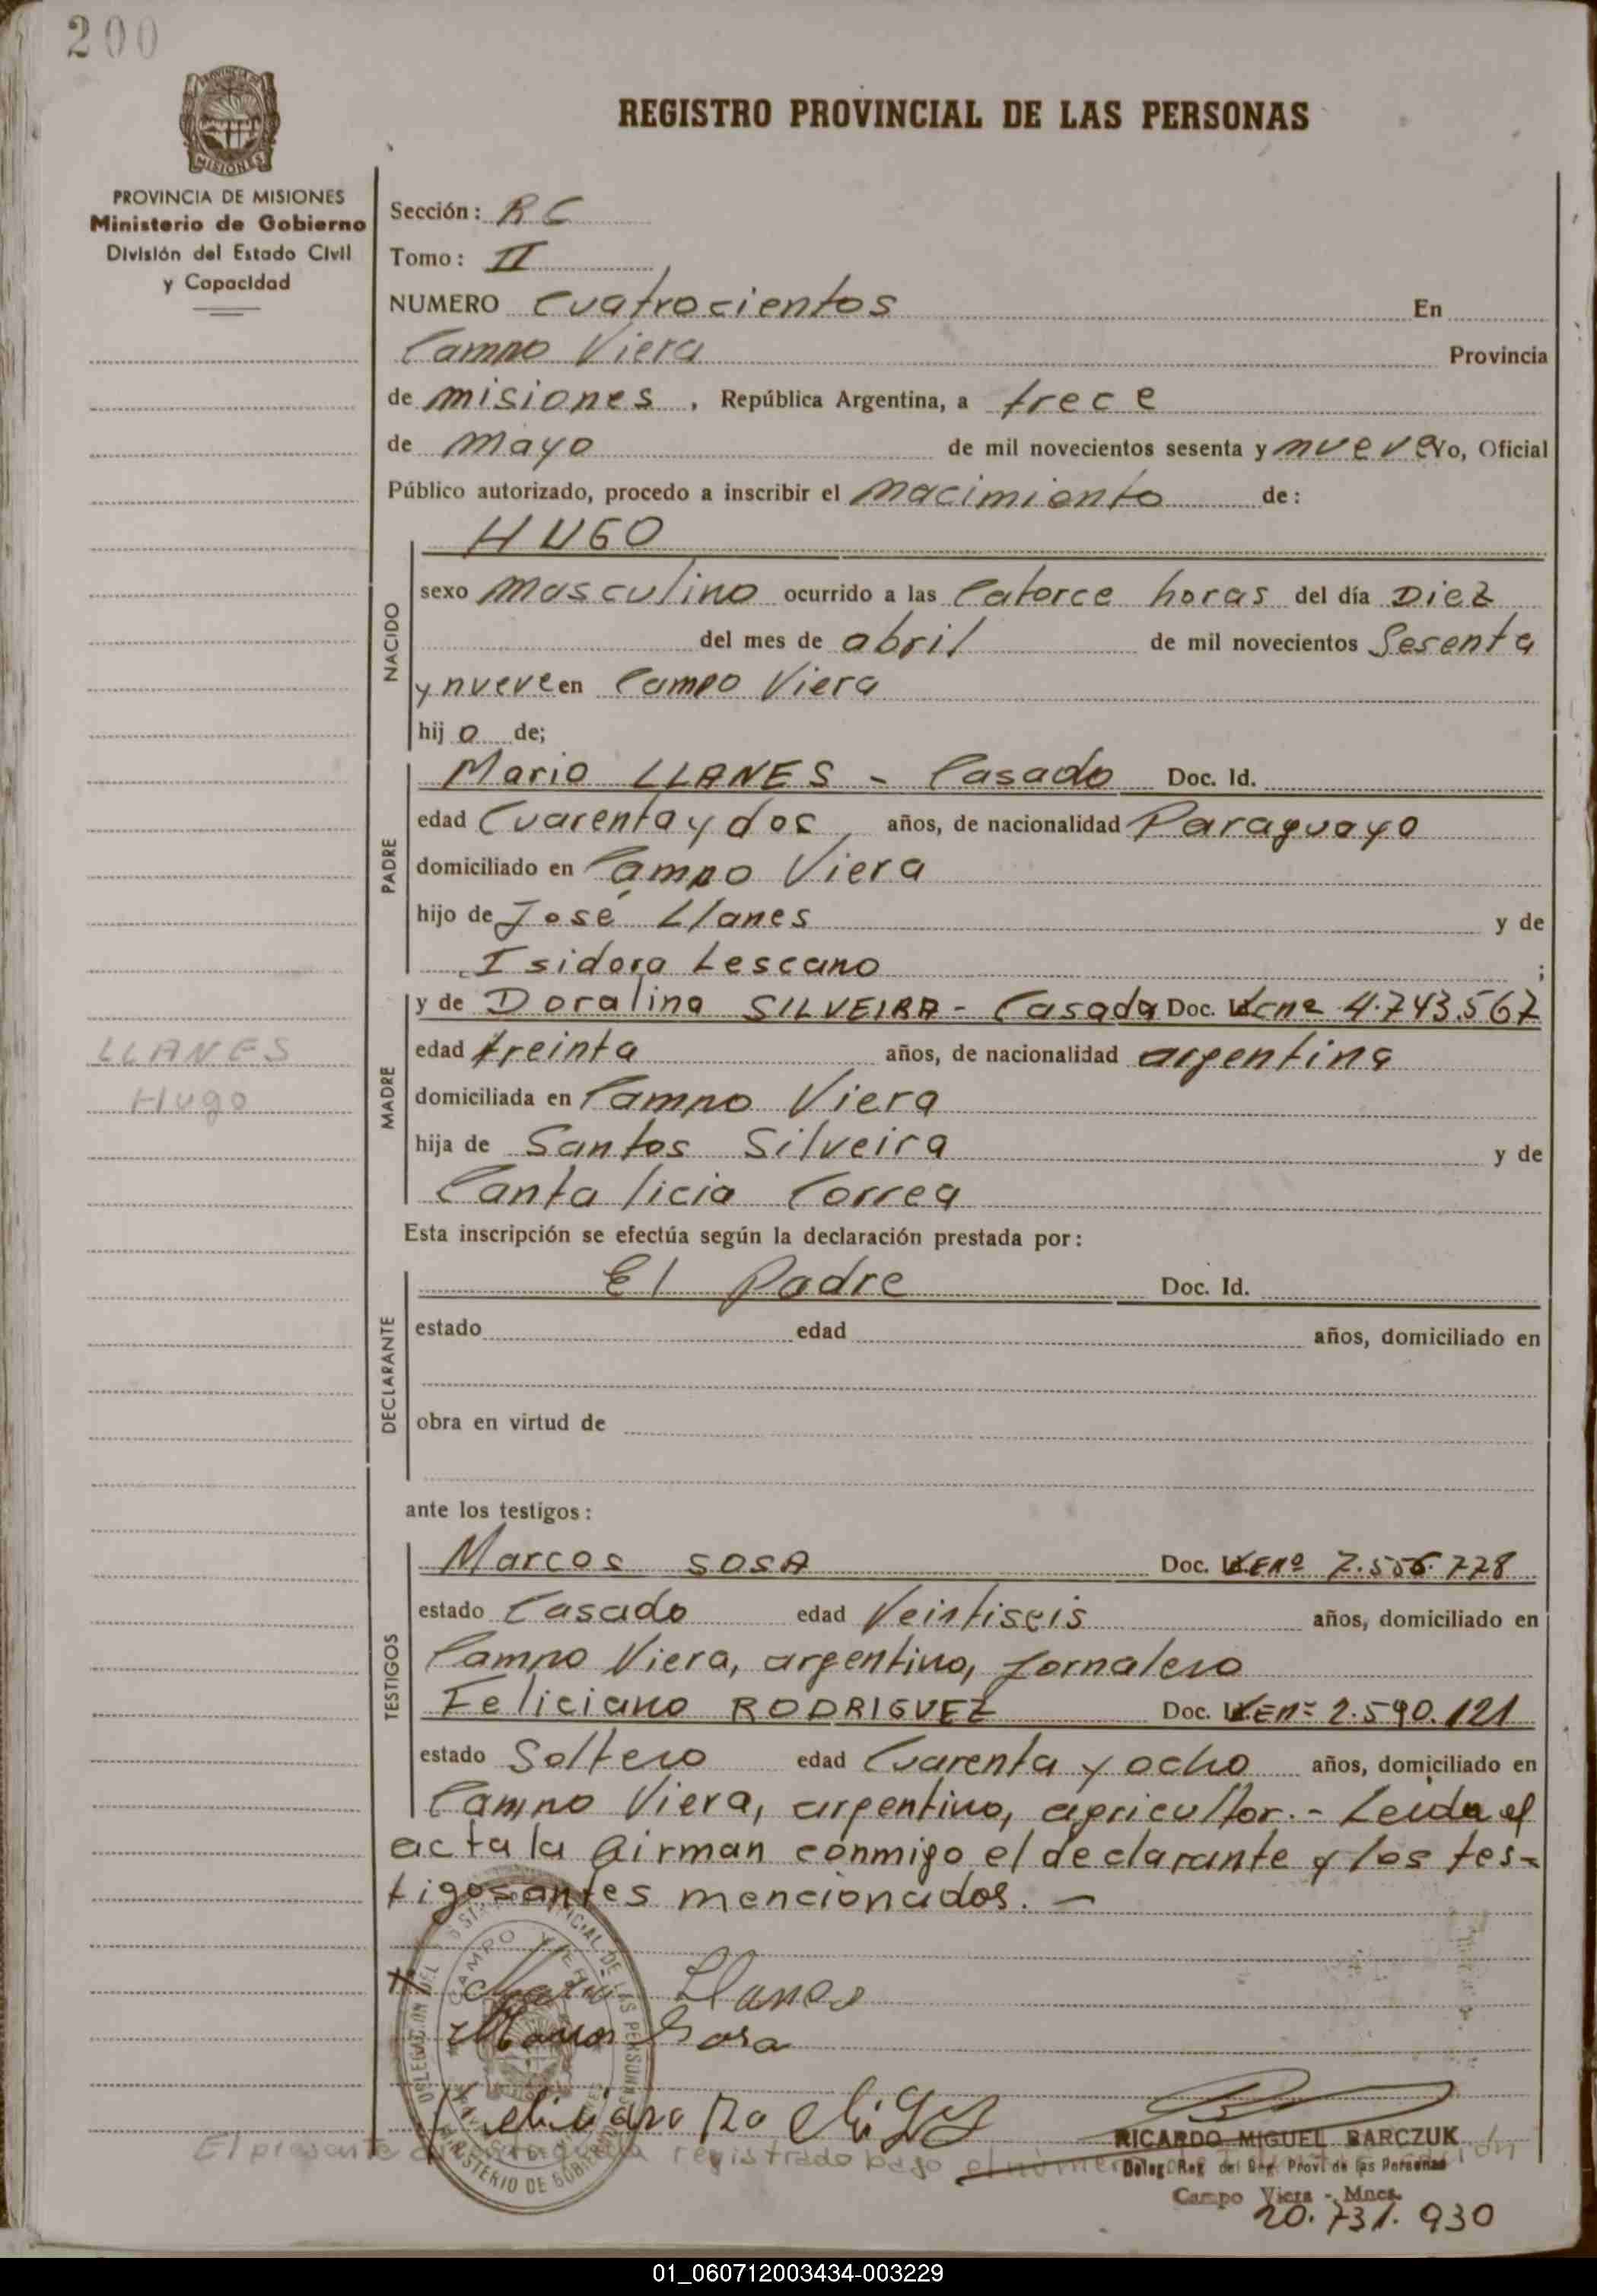 200
PROVINCIA DE MISIONES
Ministerio de Gobierno
División del Estado Civil
y Capacidad
REGISTRO PROVINCIAL DE LAS PERSONAS
Sección: RC
Tomo: II
NUMERO Cuatrocientos En
Campo Viera Provincia
de misiones, República Argentina, a trece
de mayo de mil novecientos sesenta y nueve Yo, Oficial
Público autorizado, procedo a inscribir el nacimiento de:
HUGO
NACIDO
sexo masculino ocurrido a las Catorce horas del día Diez
del mes de abril de mil novecientos Sesenta
y nueve en Campo Viera
hij o de;
PADRE
Mario LLANES - Casado Doc. Id.
edad Cuarenta y dos, años, de nacionalidad Paraguayo
domiciliado en Campo Viera
hijo de José Llanes y de
Isidora Lescano ;
MADRE
y de Doralina SILVEIRA - Casada Doc. LCnº 4.743.567
edad treinta años, de nacionalidad argentina
LLANES
Hugo
domiciliada en Campo Viera
hija de Santos Silveira y de
Cantalicia Correa
Esta inscripción se efectúa según la declaración prestada por:
DECLARANTE
El Padre Doc. Id.
estado edad años, domiciliado en
obra en virtud de
ante los testigos:
TESTIGOS
Marcos SOSA Doc. LEnº 7.556.778
estado Casado edad Veintiseis años, domiciliado en
Campo Viera, argentino, Jornalero
Feliciano RODRIGUEZ Doc. LEnº 2.590.121
estado Soltero edad Cuarenta y ocho años, domiciliado en
Campo Viera, argentino, agricultor.- Leida el
acta la firman conmigo el declarante y los tes-
tigos antes mencionados. -
Mario Llanes
Marcos Sosa
DELEGACION DEL REGISTRO PROVINCIAL DE LAS PERSONAS
CAMPO VIERA
MINISTERIO DE GOBIERNO
El presente registrado bajo el número
RICARDO MIGUEL BARCZUK
Deleg. Reg. del Reg. Prov. de las Personas
Campo Viera - Mnes.
20.731.930
01_060712003434-003229